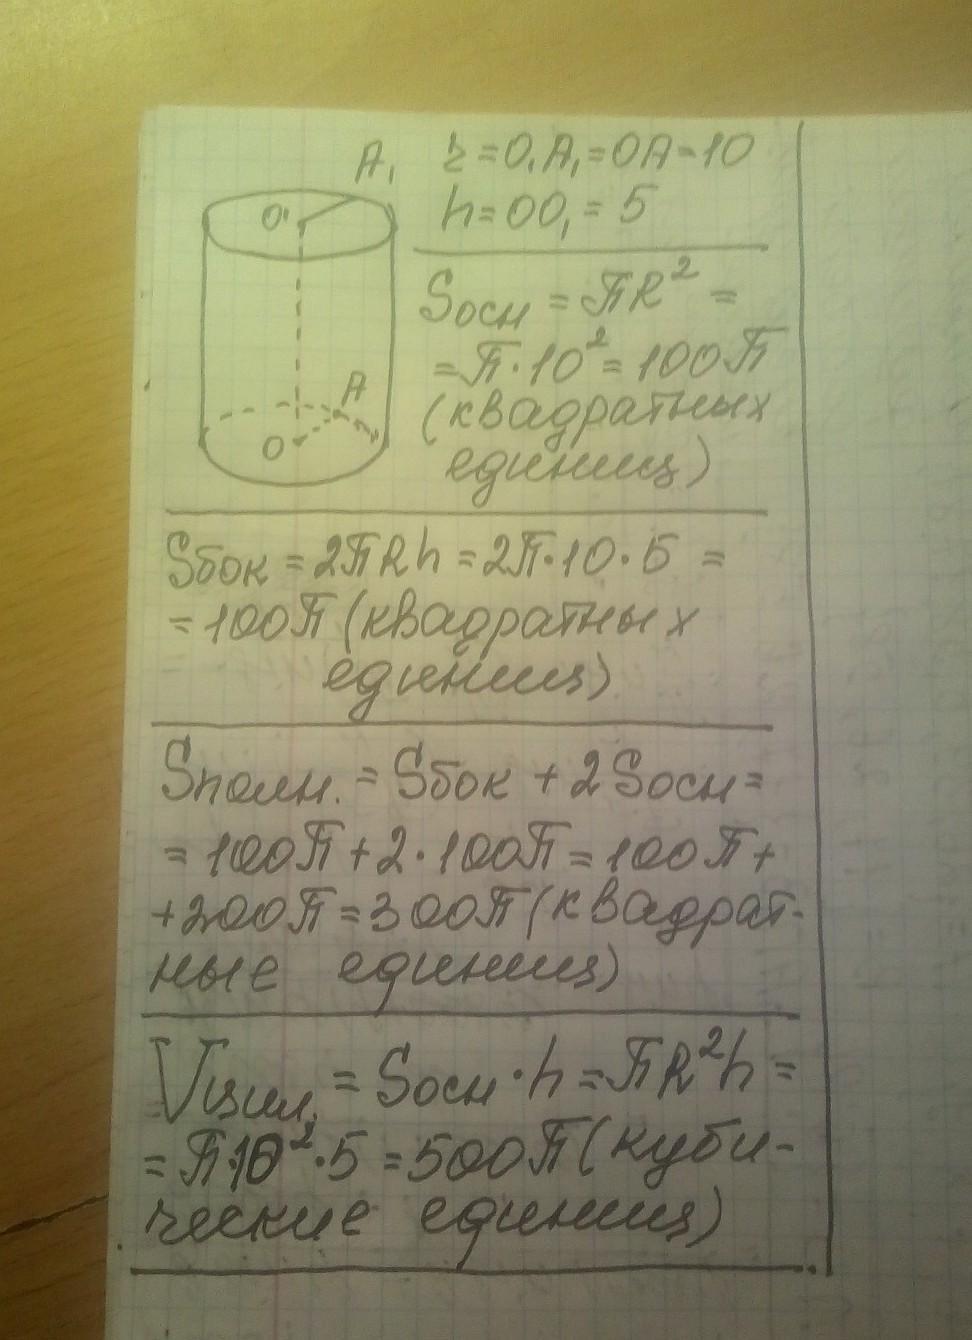 A₁ r=O₁A₁=OA=10
O¹ h=OO₁=5
Sосн = πR² =
= π·10² = 100π
A (квадратных
O единиц)
Sбок = 2πRh = 2π·10·5 =
= 100π (квадратных
единиц)
Sполн. = Sбок + 2Sосн =
= 100π + 2·100π = 100π +
+200π = 300π (квадрат-
ные единиц)
Vцил. = Sосн·h = πR²h =
= π·10²·5 = 500π (куби-
ческие единиц)